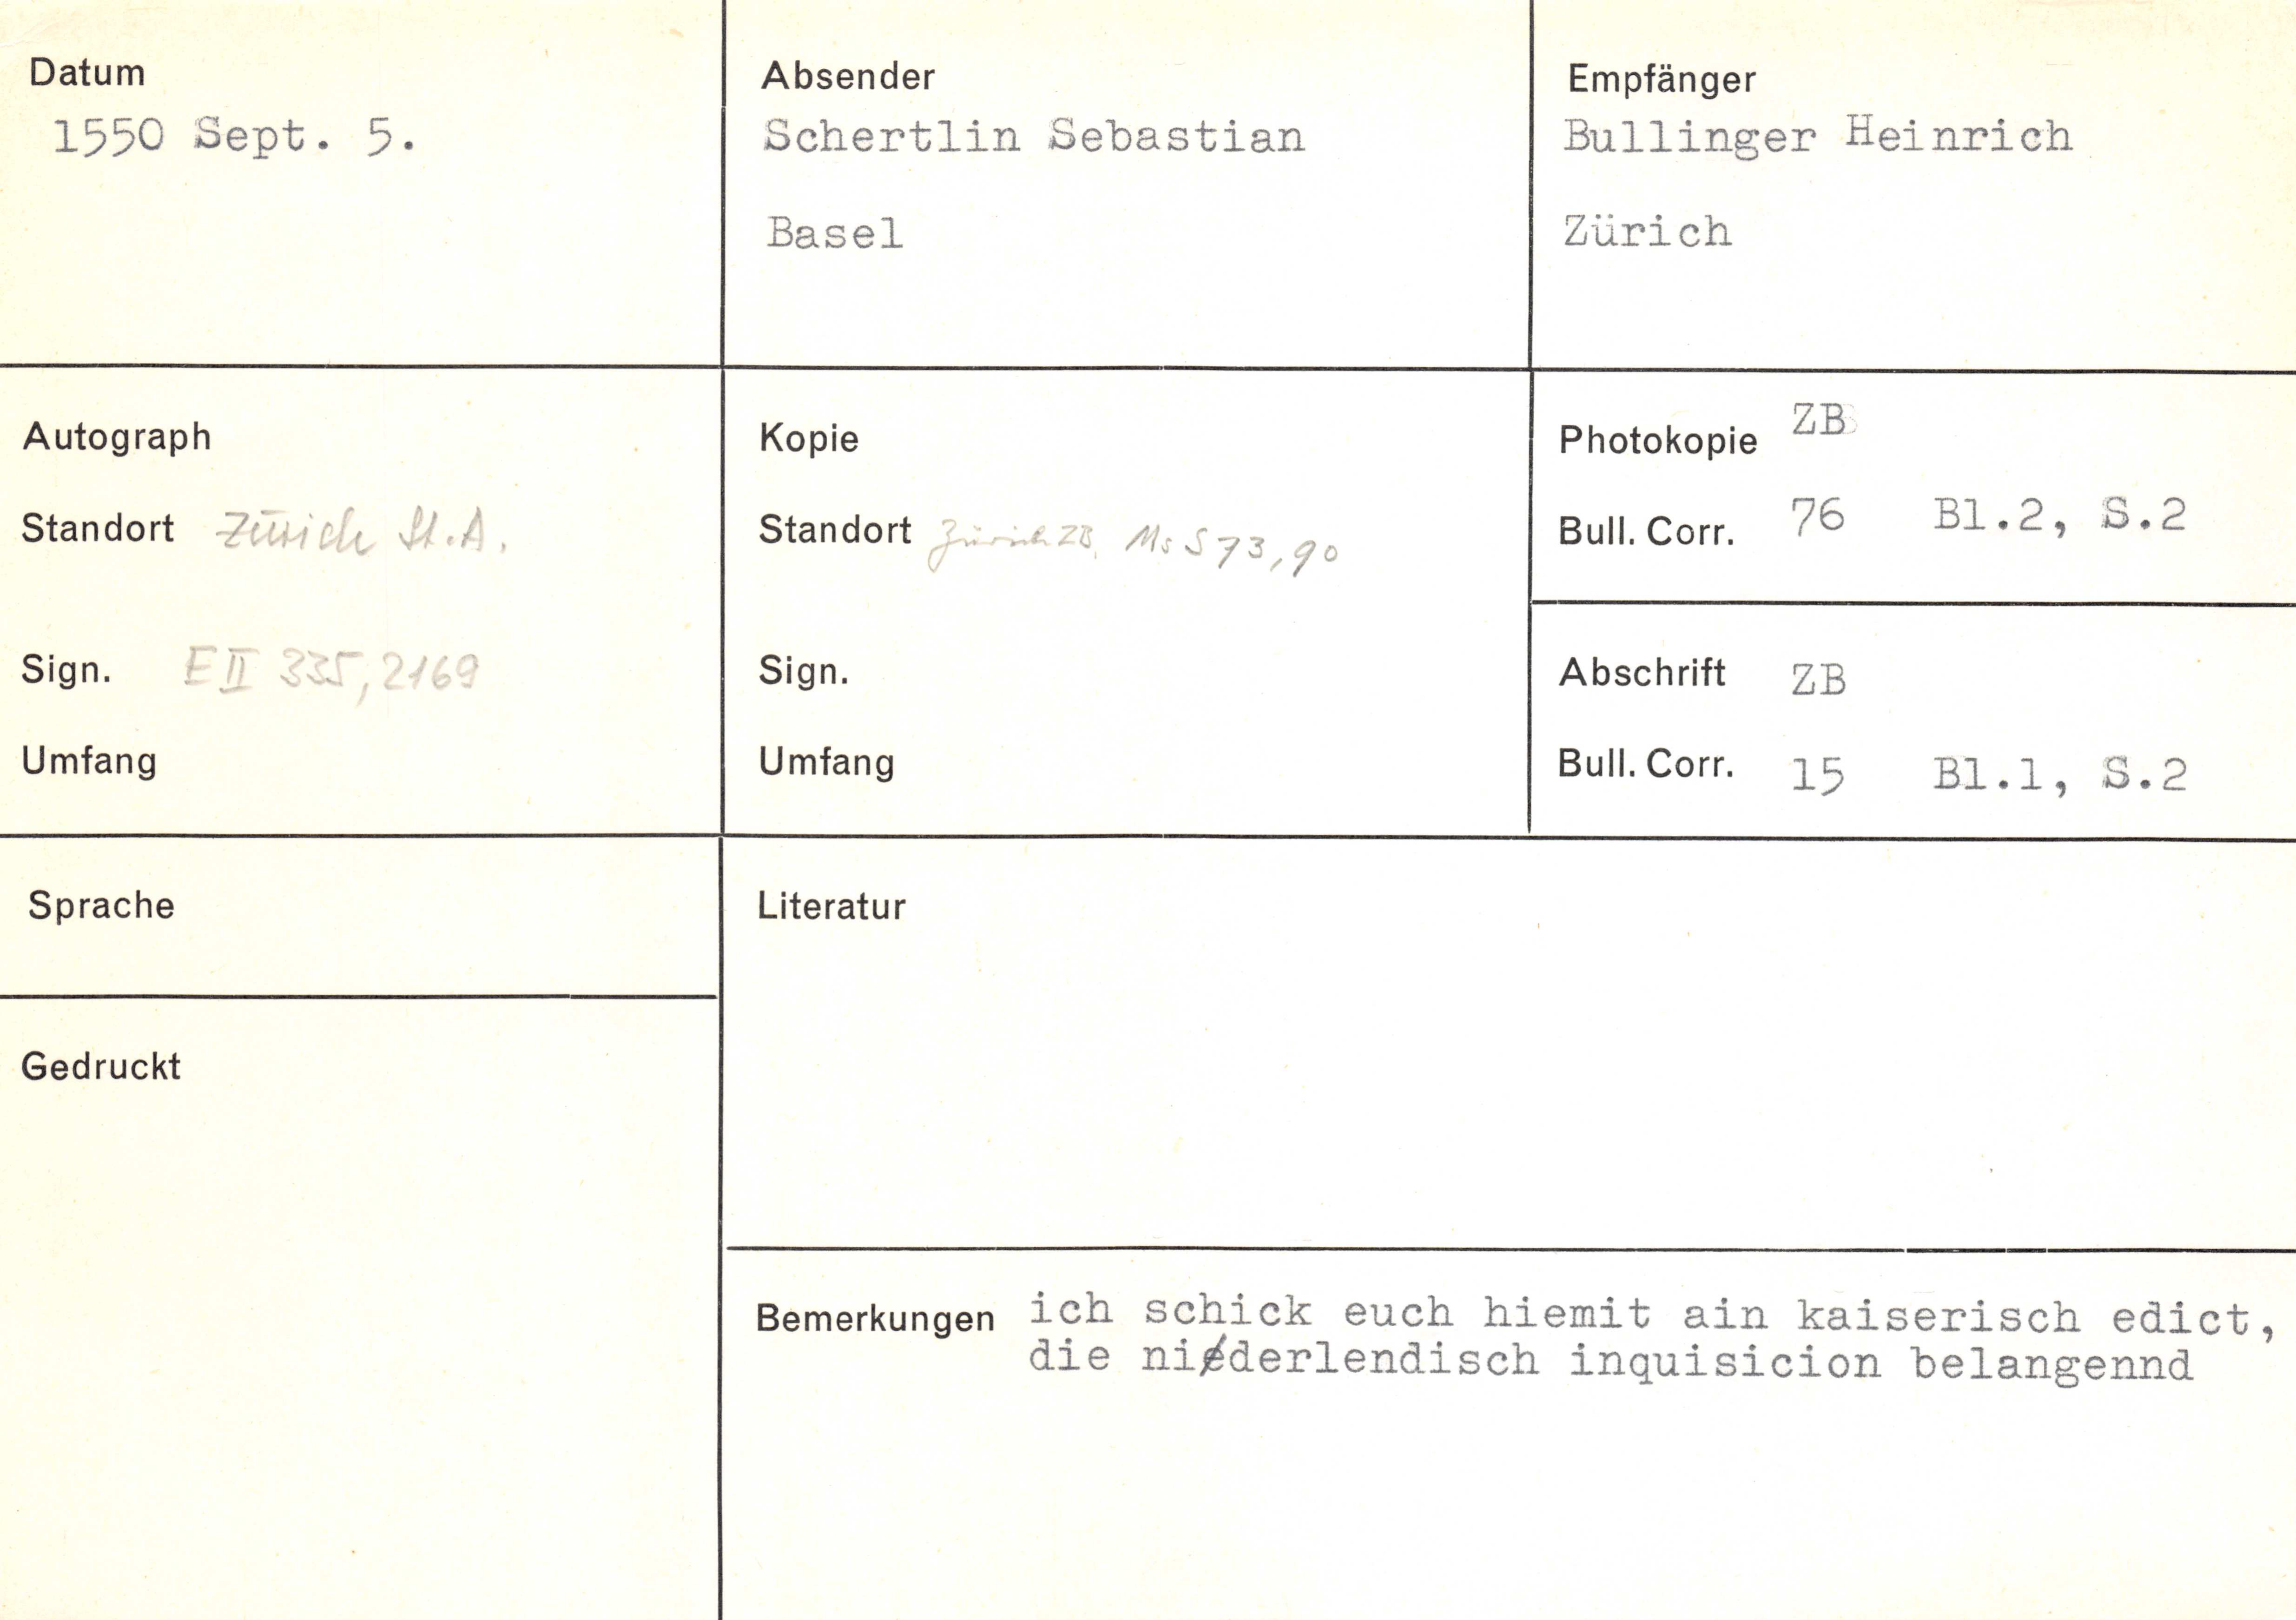 Datum
1550 Sept. 5.
Absender
Schertlin Sebastian
Basel
Empfänger
Bullinger Heinrich
Zürich
Autograph
Standort Zürich St.A.
Sign. E II 335, 2169
Umfang
Kopie
Standort Zürich ZB, Ms S 73, 90
Sign.
Umfang
Photokopie ZB
Bull. Corr. 76 Bl.2, S.2
Abschrift ZB
Bull. Corr. 15 Bl.1, S.2
Sprache
Gedruckt
Literatur
Bemerkungen ich schick euch hiemit ain kaiserisch edict,
die niderlendisch inquisicion belangennd